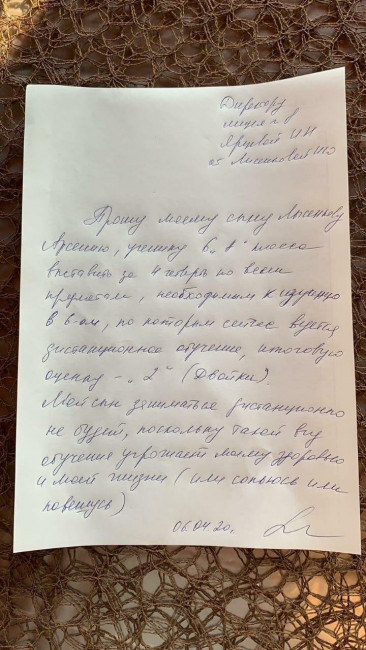 Директору
лицея № 8
Ярцевой И Н
от Лысенковой Ю
Прошу моему сыну Лысенкову
Арсению, ученику 6 „А" класса
выставить за 4 четверть по всем
предметам, необходимым к изучению
в 6-ом, по которым сейчас ведется
дистанционное обучение, итоговую
оценку – „2" (Двойки).
Мой сын заниматься дистанционно
не будет, поскольку такой вид
обучения угрожает моему здоровью
и моей жизни (или сопьюсь или
повешусь)
06.04.20г.